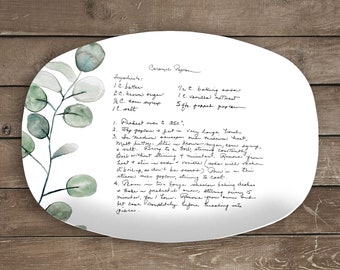 Caramel Popcorn
Ingredients:
1 C. butter
2 C. brown sugar
1/2 C. corn syrup
1 t. salt
1/2 t. baking soda
1 t. vanilla extract
5 qts. popped popcorn
1. Preheat oven to 250°.
2. Pop popcorn & put in very large bowl.
3. In medium saucepan over medium heat,
melt butter. Stir in brown sugar, corn syrup,
& salt. Bring to a boil, stirring constantly.
Boil without stirring 4 minutes. Remove from
heat & stir in soda & vanilla
stream over popcorn, stirring to coat.
4. Place in two large shallow baking dishes
& bake in preheated oven, stirring every 15
minutes, for 1 hour. Remove from oven and
let cool completely before breaking into
pieces.